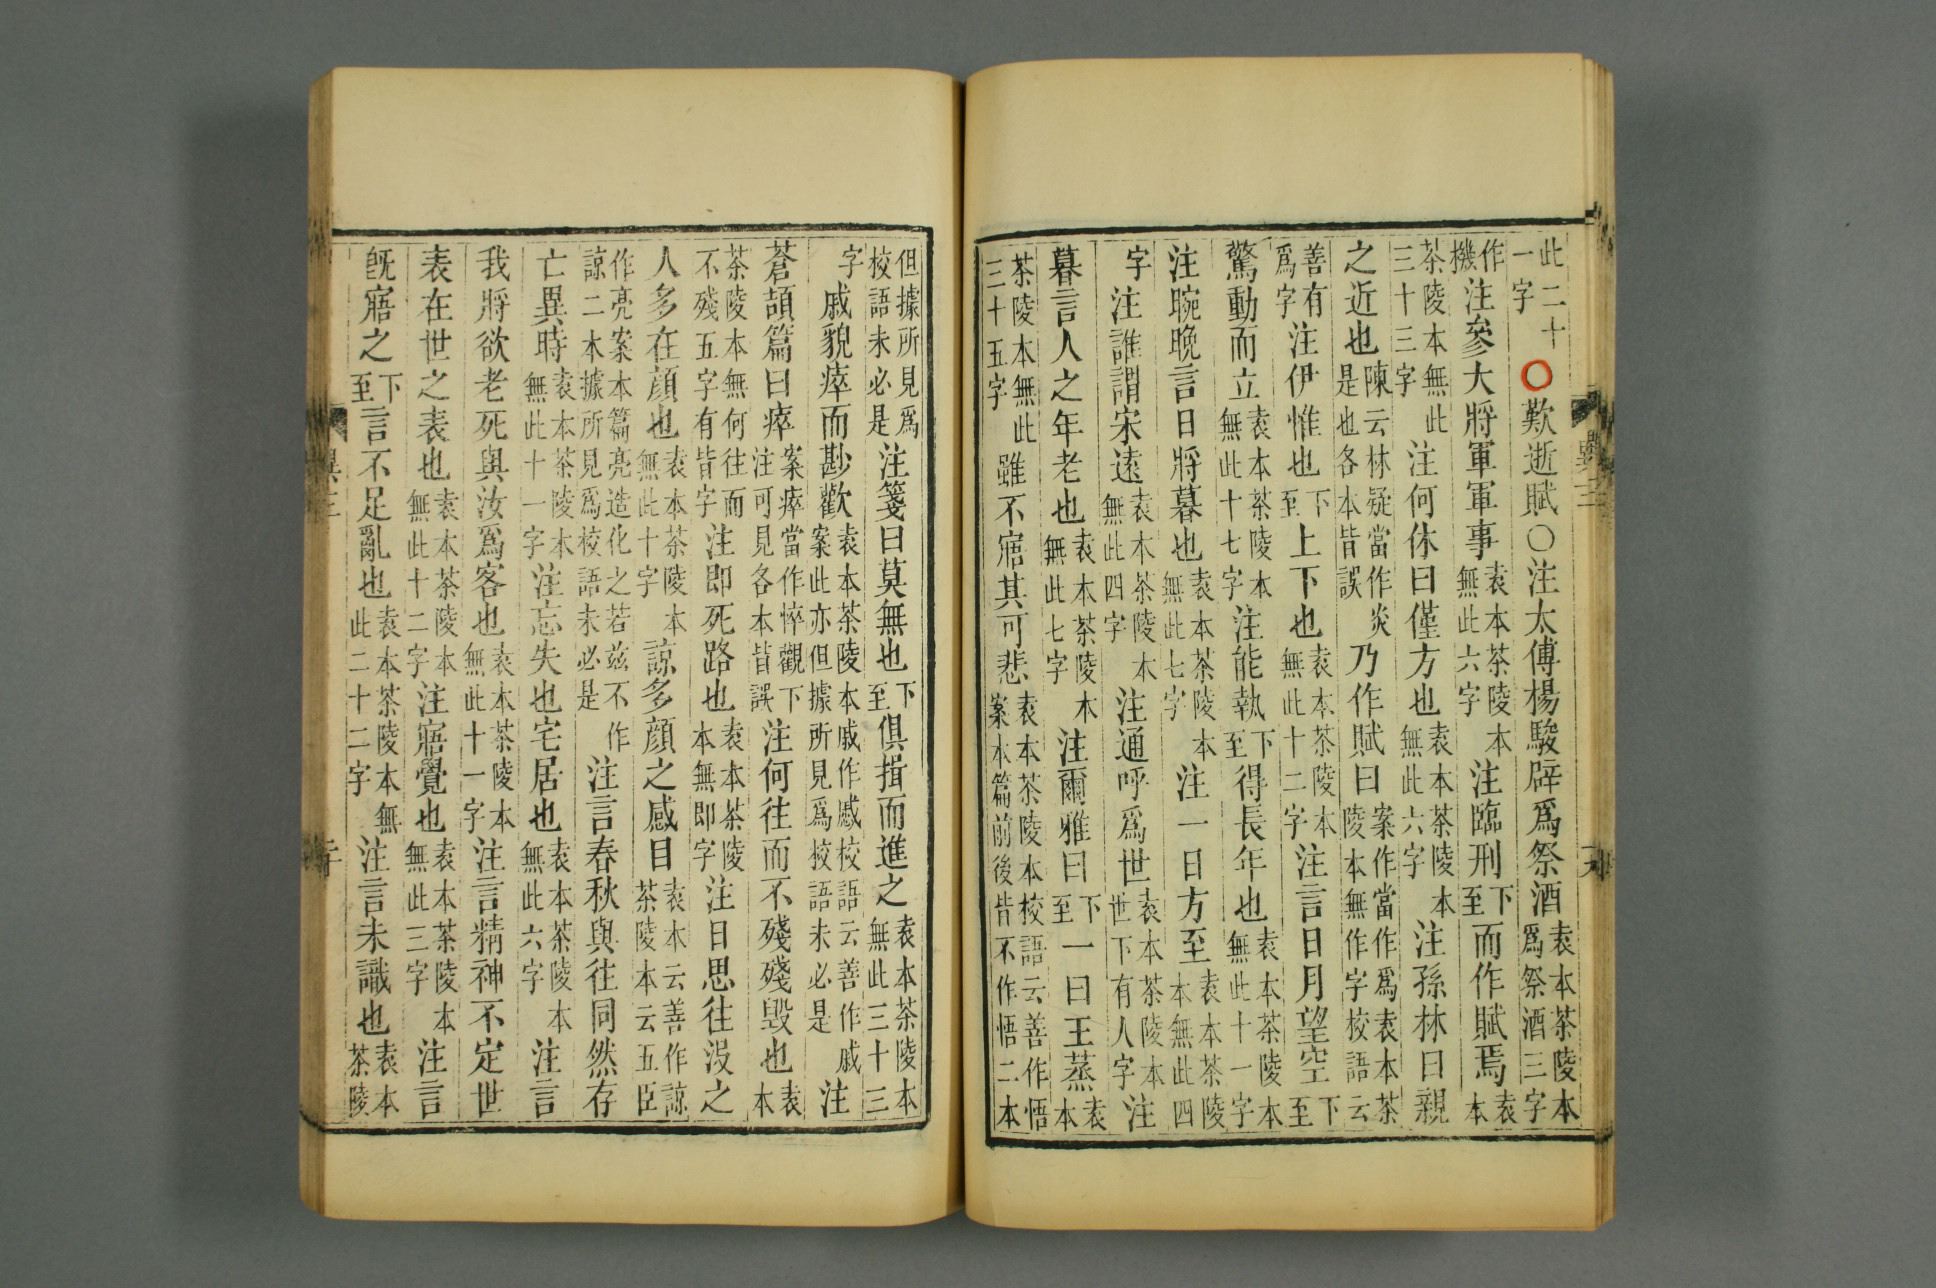 此二十一字〇歎逝賦〇注太傅楊駿辟爲祭酒袁本茶陵本爲祭酒三字
作機注參大將軍軍事袁本茶陵本無此六字注臨刑下至而作賦焉袁本
茶陵本無此三十三字注何休曰僅方也袁本茶陵本無此六字注孫林曰親
之近也陳云林疑當作炎是也各本皆誤乃作賦曰案作當作爲袁本茶陵本無作字校語云
善有爲字注伊惟也下至上下也袁本茶陵本無此十二字注言日月望空下至
驚動而立袁本茶陵本無此十七字注能執下至得長年也袁本茶陵本無此十一字
注晼晚言日將暮也袁本茶陵本無此七字注一日方至袁本茶陵本無此四
字注誰謂宋遠袁本茶陵本無此四字注通呼爲世袁本茶陵本世下有人字注
暮言人之年老也袁本茶陵本無此七字注爾雅曰下至一曰王蒸袁本
茶陵本無此三十五字雖不寤其可悲袁本茶陵本校語云善作悟案本篇前後皆不作悟二本
但據所見爲校語未必是注箋曰莫無也下至俱揖而進之袁本茶陵本無此三十三
字戚貌瘁而尠歡袁本茶陵本戚作慼校語云善作戚案此亦但據所見爲校語未必是注
蒼頡篇曰瘁案瘁當作悴觀下注可見各本皆誤注何往而不殘殘毀也袁本
茶陵本無何往而不殘五字有皆字注即死路也袁本茶陵本無即字注日思往没之
人多在顏也袁本茶陵本無此十字諒多顏之感目袁本云善作諒茶陵本云五臣
作亮案本篇亮造化之若茲不作諒二本據所見爲校語未必是注言春秋與往同然存
亡異時袁本茶陵本無此十一字注忘失也宅居也袁本茶陵本無此六字注言
我將欲老死與汝爲客也袁本茶陵本無此十一字注言精神不定世
表在世之表也袁本茶陵本無此十二字注寤覺也袁本茶陵本無此三字注言
既寤之下至言不足亂也袁本茶陵本無此二十二字注言未識也袁本茶陵